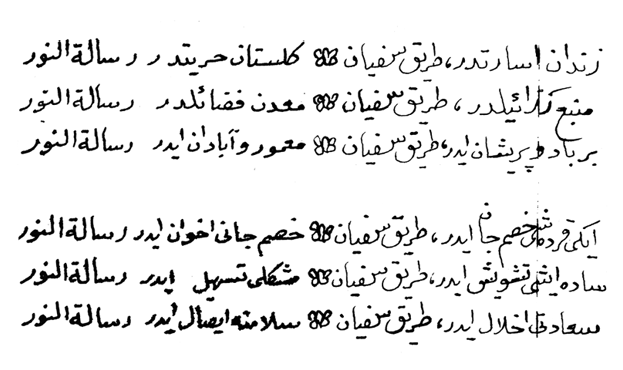 زندان اسارتدر، طریق سفیان ❀ کلستان حریتدر رسالة النور
منبع رذائیلدر، طریق سفیان ❀ معدن فضائلدر رسالة النور
بر باد و پریشان ایدر، طریق سفیان ❀ معمور و آبادان ایدر رسالة النور
ایکی قردشی خصم جان ایدر، طریق سفیان ❀ خصم جانی اخوان ایدر رسالة النور
ساده ایشی تشویش ایدر، طریق سفیان ❀ مشکلی تسهیل ایدر رسالة النور
سعادتی اخلال ایدر، طریق سفیان ❀ سلامته ایصال ایدر رسالة النور